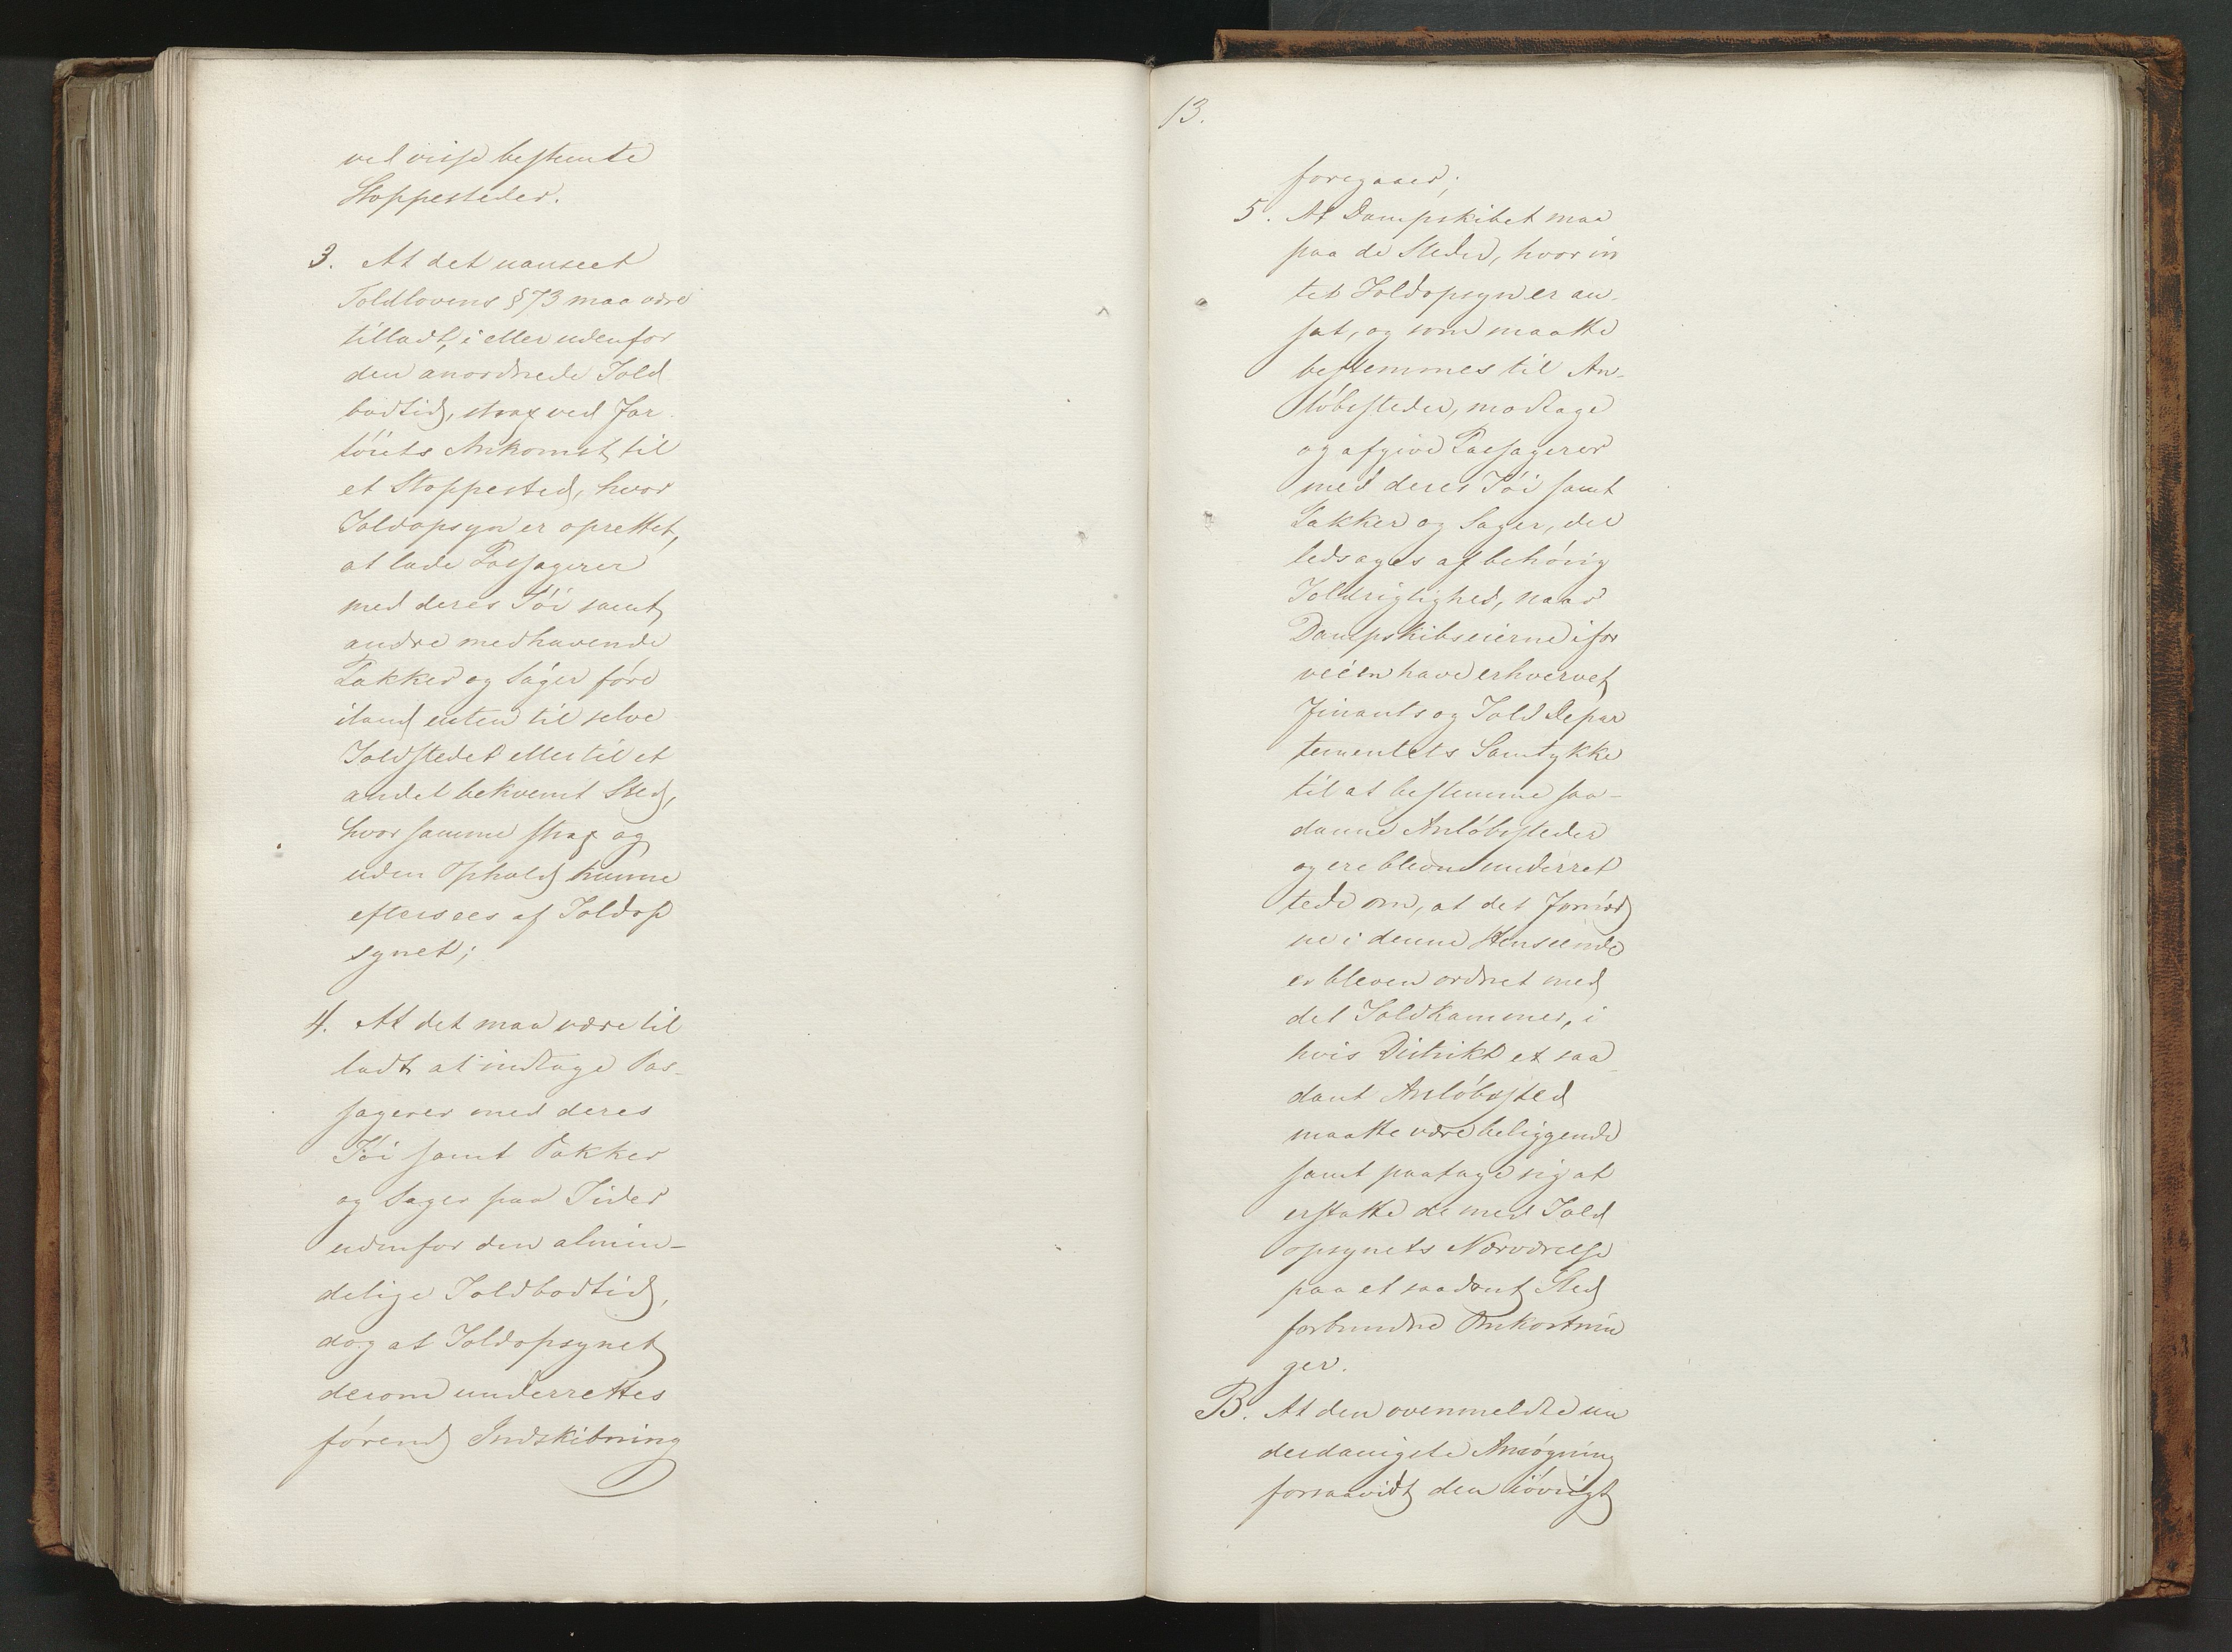 ved visse bestemte
Stoppesteder.
3. At det uanseet
Toldlovens § 73 maa være
tilladt, i eller udenfor
den anordnede Told
bodtid, strax ved Far-
töiets Ankomst til
et Stoppested, hvor
Toldopsyn er oprettet,
at lade Passagerer
med deres Töi samt
andre medhavende
Pakker og Sager före
iland enten til selve
Toldstedet eller til et
andet bekvemt Sted,
hvor samme strax og
uden Ophold kunne
eftersees af Toldop
synet;
4. At det maa være til
ladt at indtage Pas-
sagerer med deres
Töi samt Pakker
og Sager paa Tider
udenfor den almin-
delige Toldbodtid,
dog at Toldopsynet
derom underrettes
förend Indskibning
13.
foregaaer;
5. At Dampskibet maa
paa de Steder, hvor in
tet Toldopsyn er an-
sat, og som maatte
bestemmes til An-
löbesteder, modtage
og afgive Passagerer
med deres Töi samt
Pakker og Sager, der
ledsages af behörig
Toldrigtighed, naar
Dampskibseierne ifor
veien have erhvervet
Finants og Told Depar
tementets Samtykke
til at bestemme saa-
danne Anlöbesteder
og ere blevne underret
tede om, at det Fornöd
ne i denne Henseende
er bleven ordnet med
det Toldkammer, i
hvis District et saa
dant Anlöbested
maatte være beliggende
samt paatage sig at
erstatte de med Told
opsynets Nærværelse
paa et saadant Sted
forbundne Omkostnin
ger.
B. At den ovenmeldte un
derdanigste Ansögning
forsaavidt den iövrigt